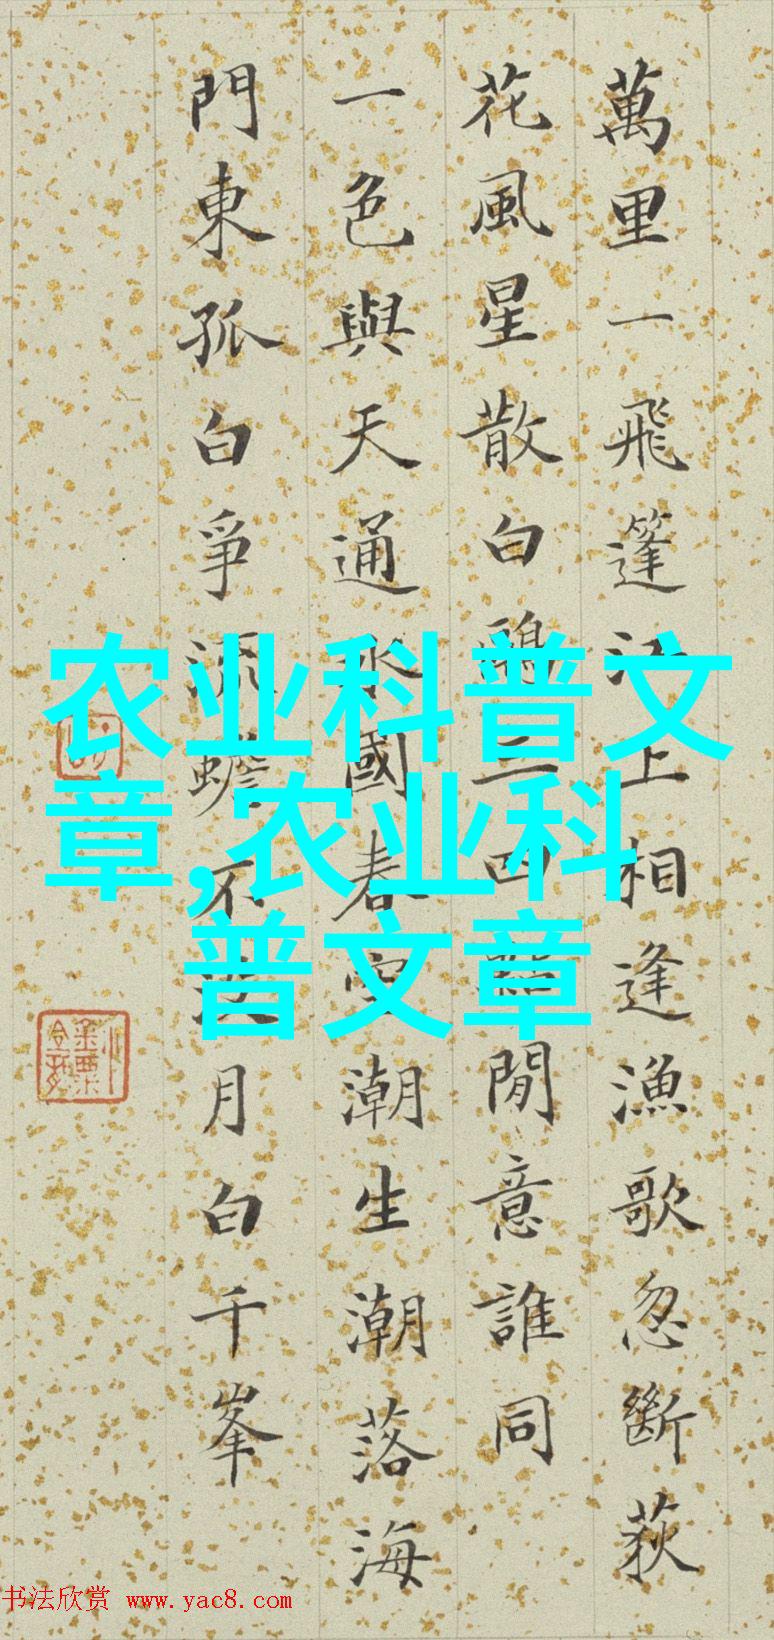 萬里一飛篷江上相逢漁歌忽斷荻
花風星散白鷗三四點閒意誰同
一色與天通水國春空潮生潮落海
門東孤白爭流蟾不定月白千峯
农业科普文
章,农业科
普文章
书法欣赏 www.yac8.com